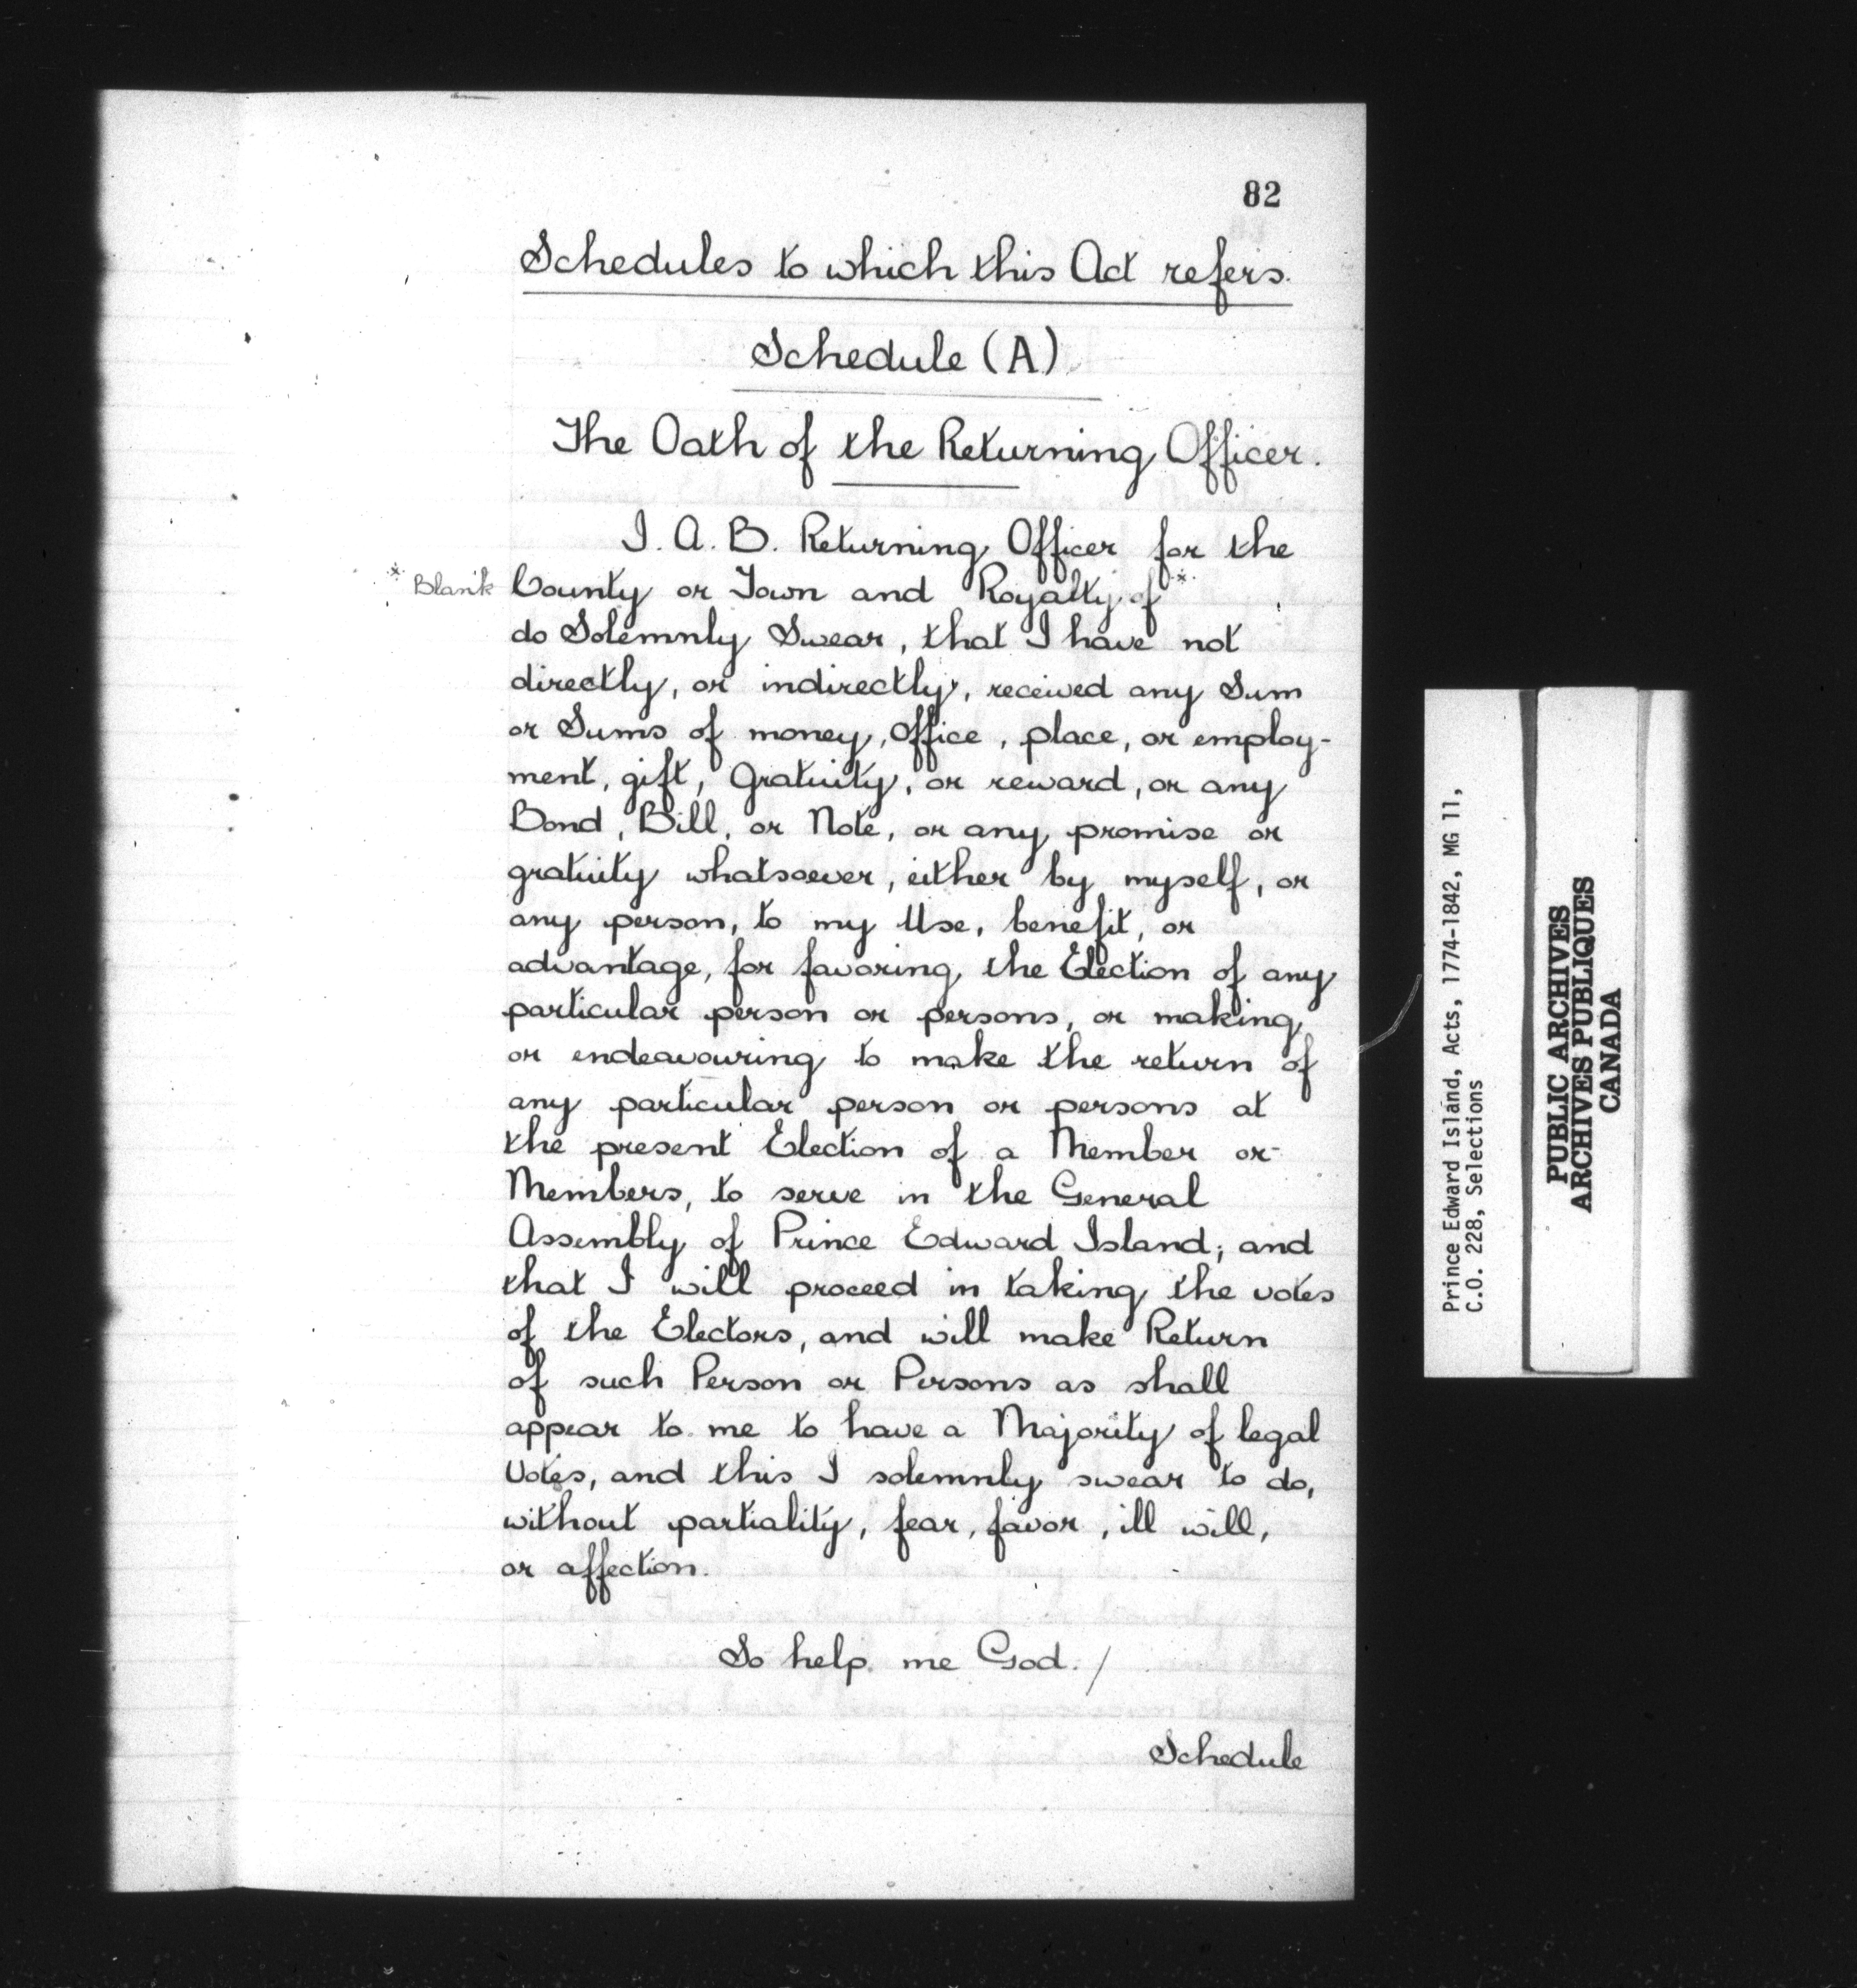 82
Schedules to which this Act refers.
Schedule (A)
The Oath of the Returning Officer.
I. A. B. Returning Officer for the
* Blank County or Town and Royalty of *
do Solemnly Swear, that I have not
directly, or indirectly, received any Sum
or Sums of money, Office, place, or employ-
ment, gift, Gratuity, or reward, or any
Bond, Bill, or Note, or any promise or
gratuity whatsoever, either by myself, or
any person, to my Use, benefit, or
advantage, for favoring the Election of any
particular person or persons, or making
or endeavouring to make the return of
any particular person or persons at
the present Election of a Member or
Members, to serve in the General
Assembly of Prince Edward Island; and
that I will proceed in taking the votes
of the Electors, and will make Return
of such Person or Persons as shall
appear to me to have a Majority of legal
Votes, and this I solemnly swear to do,
without partiality, fear, favor, ill will,
or affection.
So help me God. /
Schedule
Prince Edward Island, Acts, 1774-1842, MG 11,
C.O. 228, Selections
PUBLIC ARCHIVES
ARCHIVES PUBLIQUES
CANADA